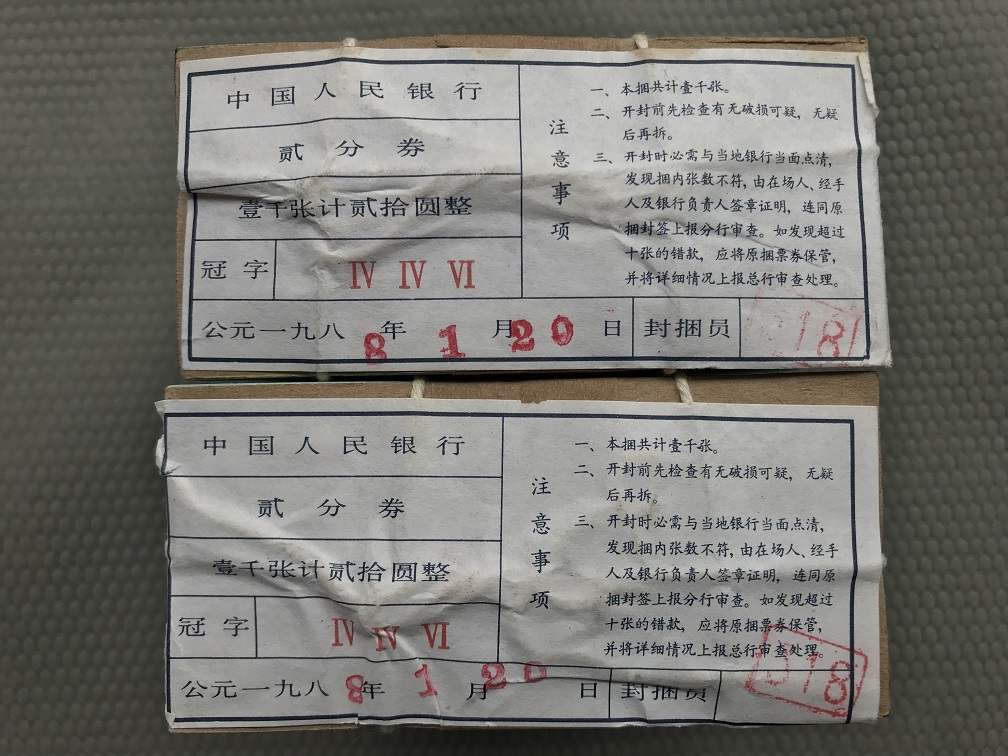 中国人民银行
贰分券
壹千张计贰拾圆整
冠字 Ⅳ Ⅳ Ⅵ
公元一九八8年1月20日 封捆员 018
注意事项
一、本捆共计壹千张。
二、开封前先检查有无破损可疑，无疑
后再拆。
三、开封时必需与当地银行当面点清，
发现捆内张数不符，由在场人、经手
人及银行负责人签章证明，连同原
捆封签上报分行审查。如发现超过
十张的错款，应将原捆票券保管，
并将详细情况上报总行审查处理。
中国人民银行
贰分券
壹千张计贰拾圆整
冠字 Ⅳ Ⅳ Ⅵ
公元一九八8年1月20日 封捆员 018
注意事项
一、本捆共计壹千张。
二、开封前先检查有无破损可疑，无疑
后再拆。
三、开封时必需与当地银行当面点清，
发现捆内张数不符，由在场人、经手
人及银行负责人签章证明，连同原
捆封签上报分行审查。如发现超过
十张的错款，应将原捆票券保管，
并将详细情况上报总行审查处理。